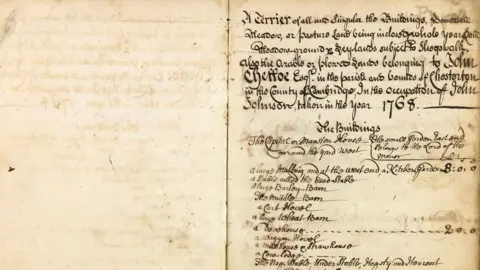 A Terrier of all and Singular the Buildings,
Meadow, or Pasture Land being inclosed whole year
Meadow-ground & Leylands subject to Sheepwalk
Also the Arable or plowed Lands belonging to John
Cheffoe Esq.r in the parish and bounds of Chesterton
in the County of Cambridge In the occupation of John
Johnson, taken in the year 1768.
The Buildings
The Capital or Mansion House
and the yard West
The small Garden East end
belongs to the Lord of the
Manor
a large Malting and at the west end a Kitchen Garden 8:0:0
a Stable called the head Stable
a large Barley Barn
The Middle Barn
a Cart Hovel
a large Wheat Barn
a Dovehouse 2:0:0
a Waggon Hovel
a House & Strawhouse
a Cow lodge
The Nag Stable Hinder Stable, Hogsty and Henroost